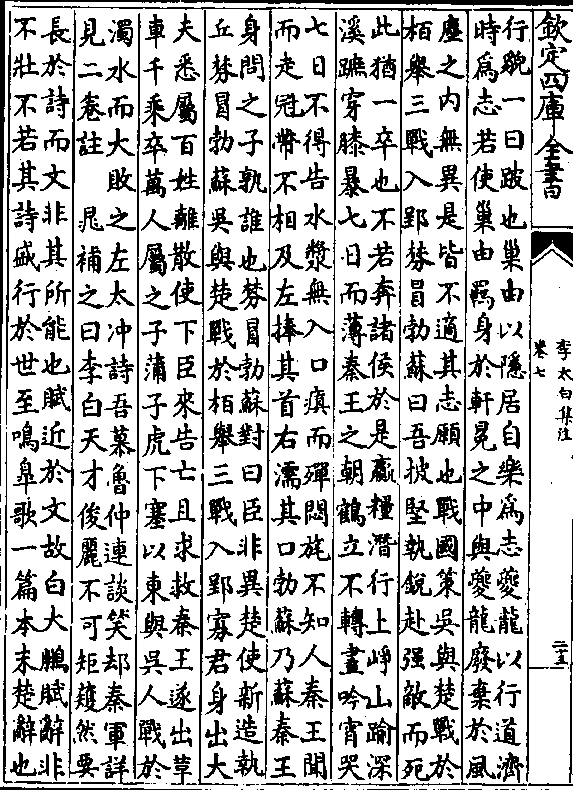 欽定四庫全書
李太白集注
卷七
二十五
行貌一曰跛也巢由以隱居自樂為志夔龍以行道濟
時為志若使巢由羈身於軒冕之中與夔龍廢棄於風
塵之內無異是皆不適其志願也戰國策吳與楚戰於
栢舉三戰入郢棼冒勃蘇曰吾披堅執銳赴强敵而死
此猶一卒也不若奔諸侯於是贏糧潛行上崢山踰深
溪蹠穿膝暴七日而薄秦王之朝鶴立不轉晝吟宵哭
七日不得告水漿無入口瘨而殫悶旄不知人秦王聞
而走冠帶不相及左捧其首右濡其口勃蘇乃蘇秦王
身問之子孰誰也棼冒勃蘇對曰臣非異楚使新造執
丘棼冒勃蘇吳與楚戰於栢舉三戰入郢寡君身出大
夫悉屬百姓離散使下臣來告亡且求救秦王遂出革
車千乘卒萬人屬之子蒲子虎下塞以東與吳人戰於
濁水而大敗之左太冲詩吾慕魯仲連談笑却秦軍詳
見二卷註　晁補之曰李白天才俊麗不可矩矱然要
長於詩而文非其所能也賦近於文故白大鵬賦辭非
不壯不若其詩盛行於世至鳴臯歌一篇本末楚辭也